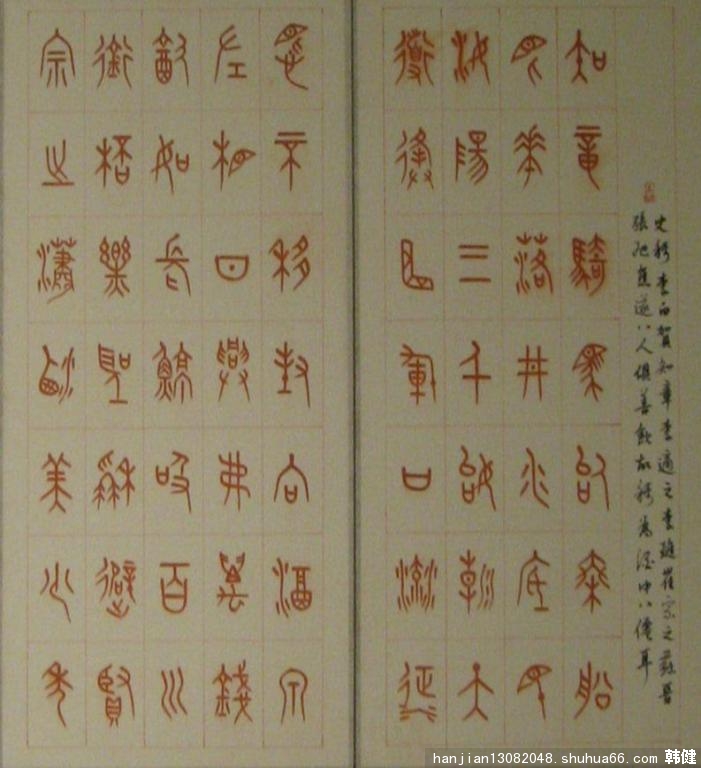 史稱李白賀知章李適之李璡崔宗之蘇晉
張旭焦遂八人俱善飲故稱為酒中八僊耳
知章騎馬似乘船
眼花落井水底眠
汝陽三斗始朝天
道逢麴車口流涎
恨不移封向酒泉
左相日興費萬錢
飲如長鯨吸百川
銜杯樂聖稱避賢
宗之瀟灑美少年
hanjian13082048.shuhua66.com 韩健